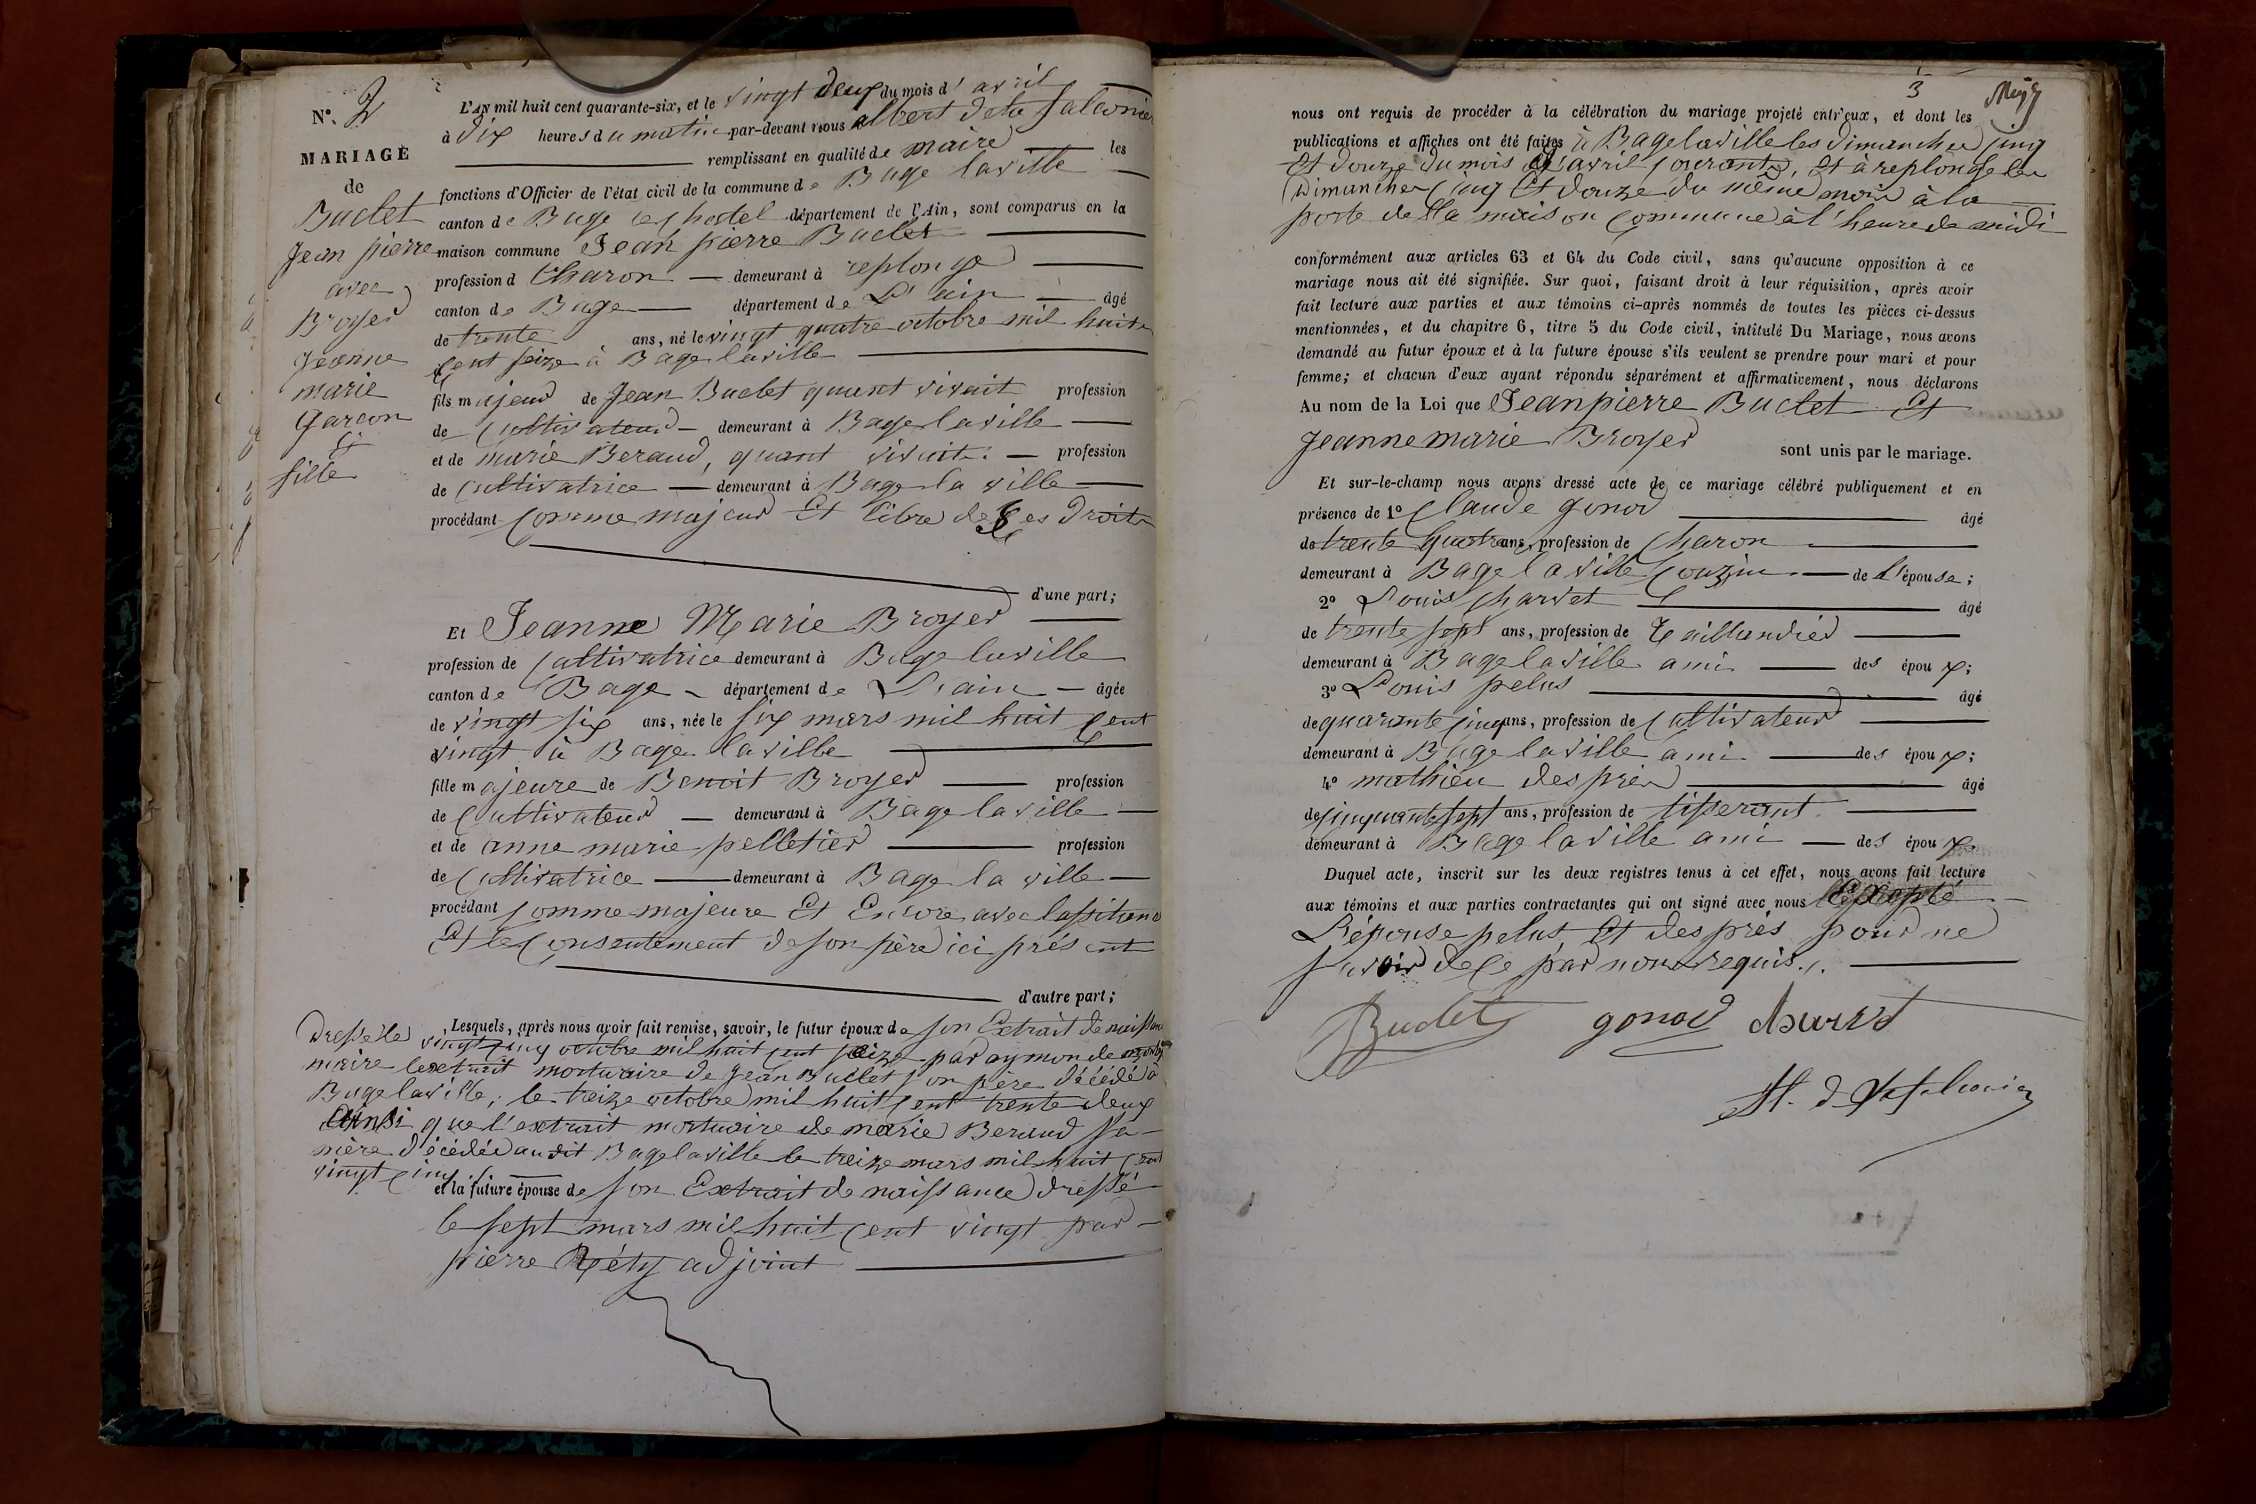 N°. 2
MARIAGE
de
Buclet
Jean pierre
avec
Broyer
Jeanne
marie
Garcon
et
fille
L'AN mil huit cent quarante-six, et le vingt deux du mois d'avril
à dix heures du matin par-devant nous albert dela falconier
remplissant en qualité de maire les
fonctions d'Officier de l'état civil de la commune de Bage laville
canton de Bage le Chatel département de l'Ain, sont comparus en la
maison commune Jean pierre Buclet
profession d Charon demeurant à replonge
canton de Bage département de L'ain âgé
de trente ans, né le vingt quatre octobre mil huit
Cent seize à Bage laville
fils majeur de Jean Buclet quant vivait profession
de Cultivateur demeurant à Bage laville
et de marie Beraud, quant vivait. profession
de Cultivatrice demeurant à Bage la ville
procédant Comme majeur Et libre de Ses droits
d'une part;
Et Jeanne Marie Broyer
profession de Cultivatrice demeurant à Bage laville
canton de Bage département de L'ain âgée
de vingt six ans, née le six mars mil huit Cent
vingt à Bage laville
fille majeure de Benoit Broyer profession
de Cultivateur demeurant à Bage laville
et de anne marie pelletier profession
de Cultivatrice demeurant à Bage la ville
procédant Comme majeure Et Encore avec lassitance
Et le Consentement de son père ici présent
d'autre part;
Lesquels, après nous avoir fait remise, savoir, le futur époux de son Extrait de naissance
Dressé le vingt cinq octobre mil huit cent seize par aymon de
maire lextrait mortuaire de Jean Buclet son père décédé à
Bage laville, le treize octobre mil huit Cent trente deux
ainsi que l'extrait mortuaire de marie Beraud sa
mère décédée audit Bage laville le treize mars mil huit Cent
vingt cinq
et la future épouse de son Extrait de naissance dressé
le sept mars mil huit Cent vingt par
pierre Réty adjoint
3
nous ont requis de procéder à la célébration du mariage projeté entr'eux, et dont les
publications et affiches ont été faites à Bage laville les dimanches cinq
Et douze du mois d'avril Courante, Et à replonge les
Dimanches Cinq Et douze du même mois à la
porte de la maison Commune à l'heure de midi
conformément aux articles 63 et 64 du Code civil, sans qu'aucune opposition à ce
mariage nous ait été signifiée. Sur quoi, faisant droit à leur réquisition, après avoir
fait lecture aux parties et aux témoins ci-après nommés de toutes les pièces ci-dessus
mentionnées, et du chapitre 6, titre 5 du Code civil, intitulé Du Mariage, nous avons
demandé au futur époux et à la future épouse s'ils veulent se prendre pour mari et pour
femme; et chacun d'eux ayant répondu séparément et affirmativement, nous déclarons
Au nom de la Loi que Jean pierre Buclet Et
Jeanne marie Broyer sont unis par le mariage.
Et sur-le-champ nous avons dressé acte de ce mariage célébré publiquement et en
présence de 1° Claude gonod âgé
de trente quatre ans, profession de Charon
demeurant à Bage laville Couzin de L'épouse;
2° Louis Charvet âgé
de trente sept ans, profession de Taillandier
demeurant à Bage laville ami des époux;
3° Louis pelus âgé
de quarante cinq ans, profession de Cultivateur
demeurant à Bage laville ami des époux;
4° mathieu desprès âgé
de cinquante sept ans, profession de tisserant
demeurant à Bage laville ami des époux
Duquel acte, inscrit sur les deux registres tenus à cet effet, nous avons fait lecture
aux témoins et aux parties contractantes qui ont signé avec nous Excepté
L'épouse pelus Et desprès pour ne
savoir de Ce par nous requis.
Buclet gonod charvet